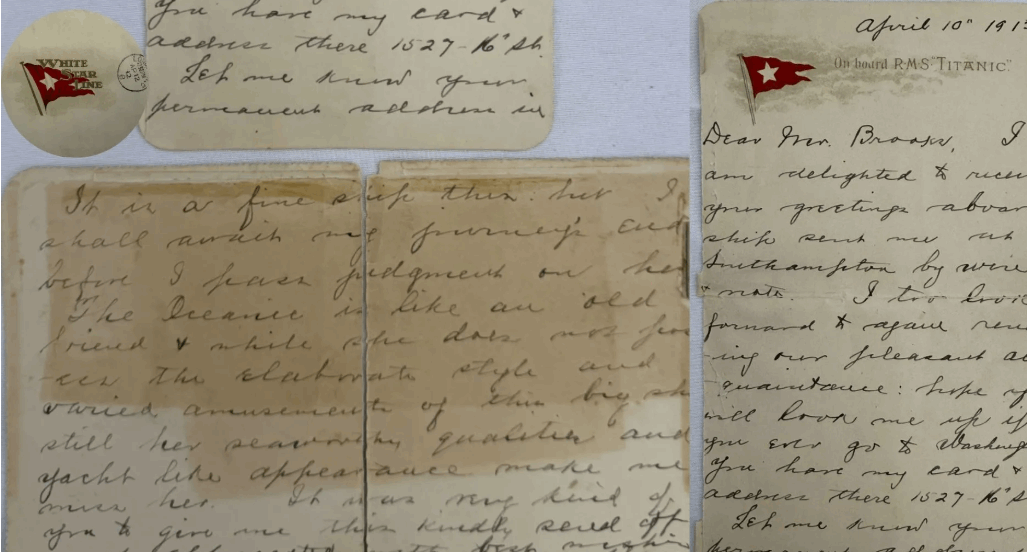 WHITE
STAR
LINE
You have my card &
address there 1527-16" St.
Let me know your
permanent address in
It is a fine ship this: but I
shall await my journey's end
before I pass judgment on her
The Oceanic is like an old
friend & while she does not pos
-ess the elaborate style and
varied amusements of this big sh
still her seaworthy qualities and
yacht like appearance make me
miss her. It was very kind of
you to give me this kindly send off
with best wishes
April 10" 191
On board R.M.S. "TITANIC".
Dear Mr. Brooks, I
am delighted to recei
your greetings aboar
ship sent me at
Southampton by wire
& note. I too look
forward to again ren
-ing our pleasant ac
-quaintance: hope y
will look me up if
you ever go to Washing
You have my card &
address there 1527-16" S
Let me know your
permanent address